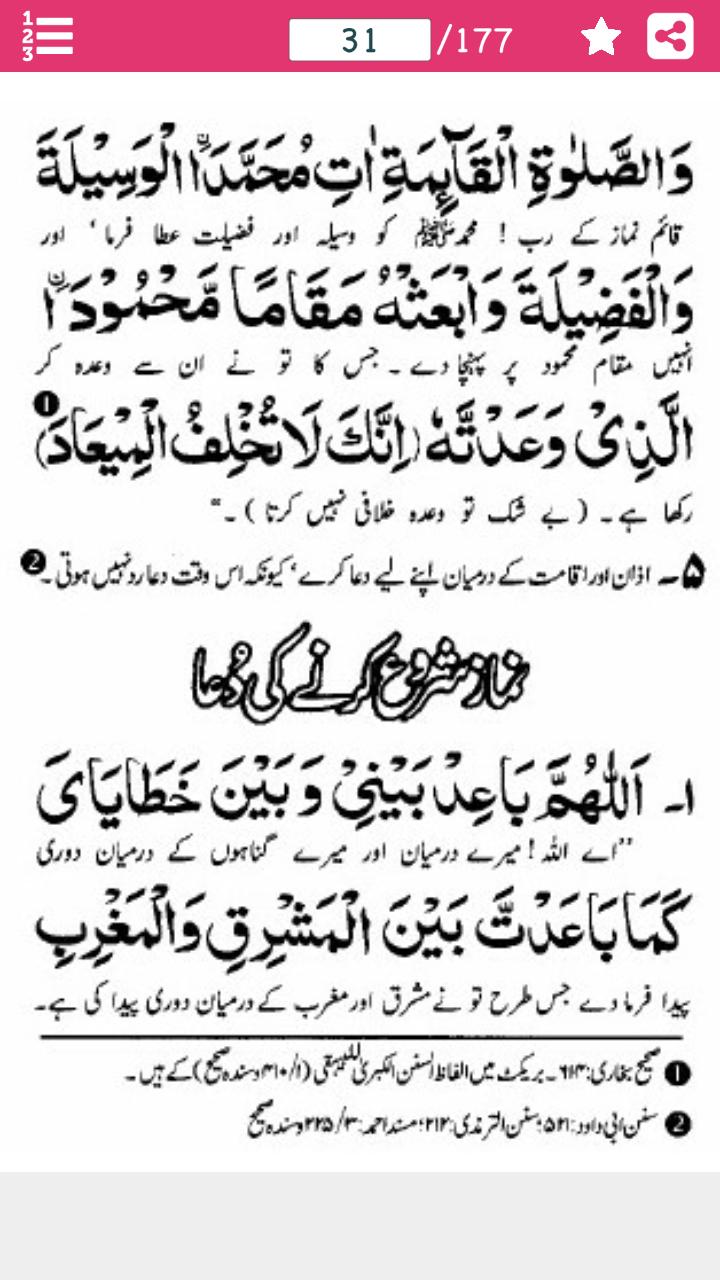 1
2
3
31 /177
وَالصَّلٰوةِ الْقَآئِمَةِ اٰتِ مُحَمَّدَاۨ الْوَسِيْلَةَ
قائم نماز کے رب ! محمد ﷺ کو وسیلہ اور فضیلت عطا فرما ' اور
وَالْفَضِيْلَةَ وَابْعَثْهُ مَقَامًا مَّحْمُوْدَاۨ
انہیں مقام محمود پر پہنچا دے ۔ جس کا تو نے ان سے وعدہ کر
الَّذِىْ وَعَدْتَّهٗ (اِنَّكَ لَا تُخْلِفُ الْمِيْعَادَ) ❶
رکھا ہے ۔ ( بے شک تو وعدہ خلافی نہیں کرتا ) ۔“
۵۔ اذان اور اقامت کے درمیان اپنے لیے دعا کرے ' کیونکہ اس وقت دعا رد نہیں ہوتی ۔ ❷
نماز شروع کرنے کی دُعا
۱۔ اَللّٰهُمَّ بَاعِدْ بَيْنِيْ وَ بَيْنَ خَطَايَاىَ
”اے اللہ ! میرے درمیان اور میرے گناہوں کے درمیان دوری
كَمَا بَاعَدْتَّ بَيْنَ الْمَشْرِقِ وَالْمَغْرِبِ
پیدا فرما دے جس طرح تو نے مشرق اور مغرب کے درمیان دوری پیدا کی ہے ۔
❶ صحیح بخاری: ۶۱۴ ۔ بریکٹ میں الفاظ السنن الکبریٰ للبیہقی (۱/۴۱۰ وسندہ صحیح) کے ہیں ۔
❷ سنن ابی داود: ۵۲۱؛ سنن الترمذی: ۲۱۲؛ مسند احمد: ۳/ ۲۲۵ وسندہ صحیح